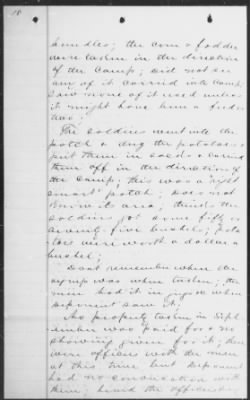 bundles; the corn & fodder
were taken in the direction
of the camp; did not see
any of it carried into camp,
saw none of it used unless
it might have been a fodder
The soldiers went into the
patch & dug the potatoes &
put them in sacks & carried
them off in the direction of
the camp; this was a right
smart patch; does not
know its area; thinks the
soldiers got some fifty or
seventy five bushels; pota
toes were worth a dollar a
bushel;
Dont remember when the
syrup was taken; the
men had it in jugs when
deponent saw it;
No property taken in Sept
ember was paid for & no
showing given for it; there
were officers with the men
at this time but deponent
had no conversation with
them; heard the officers